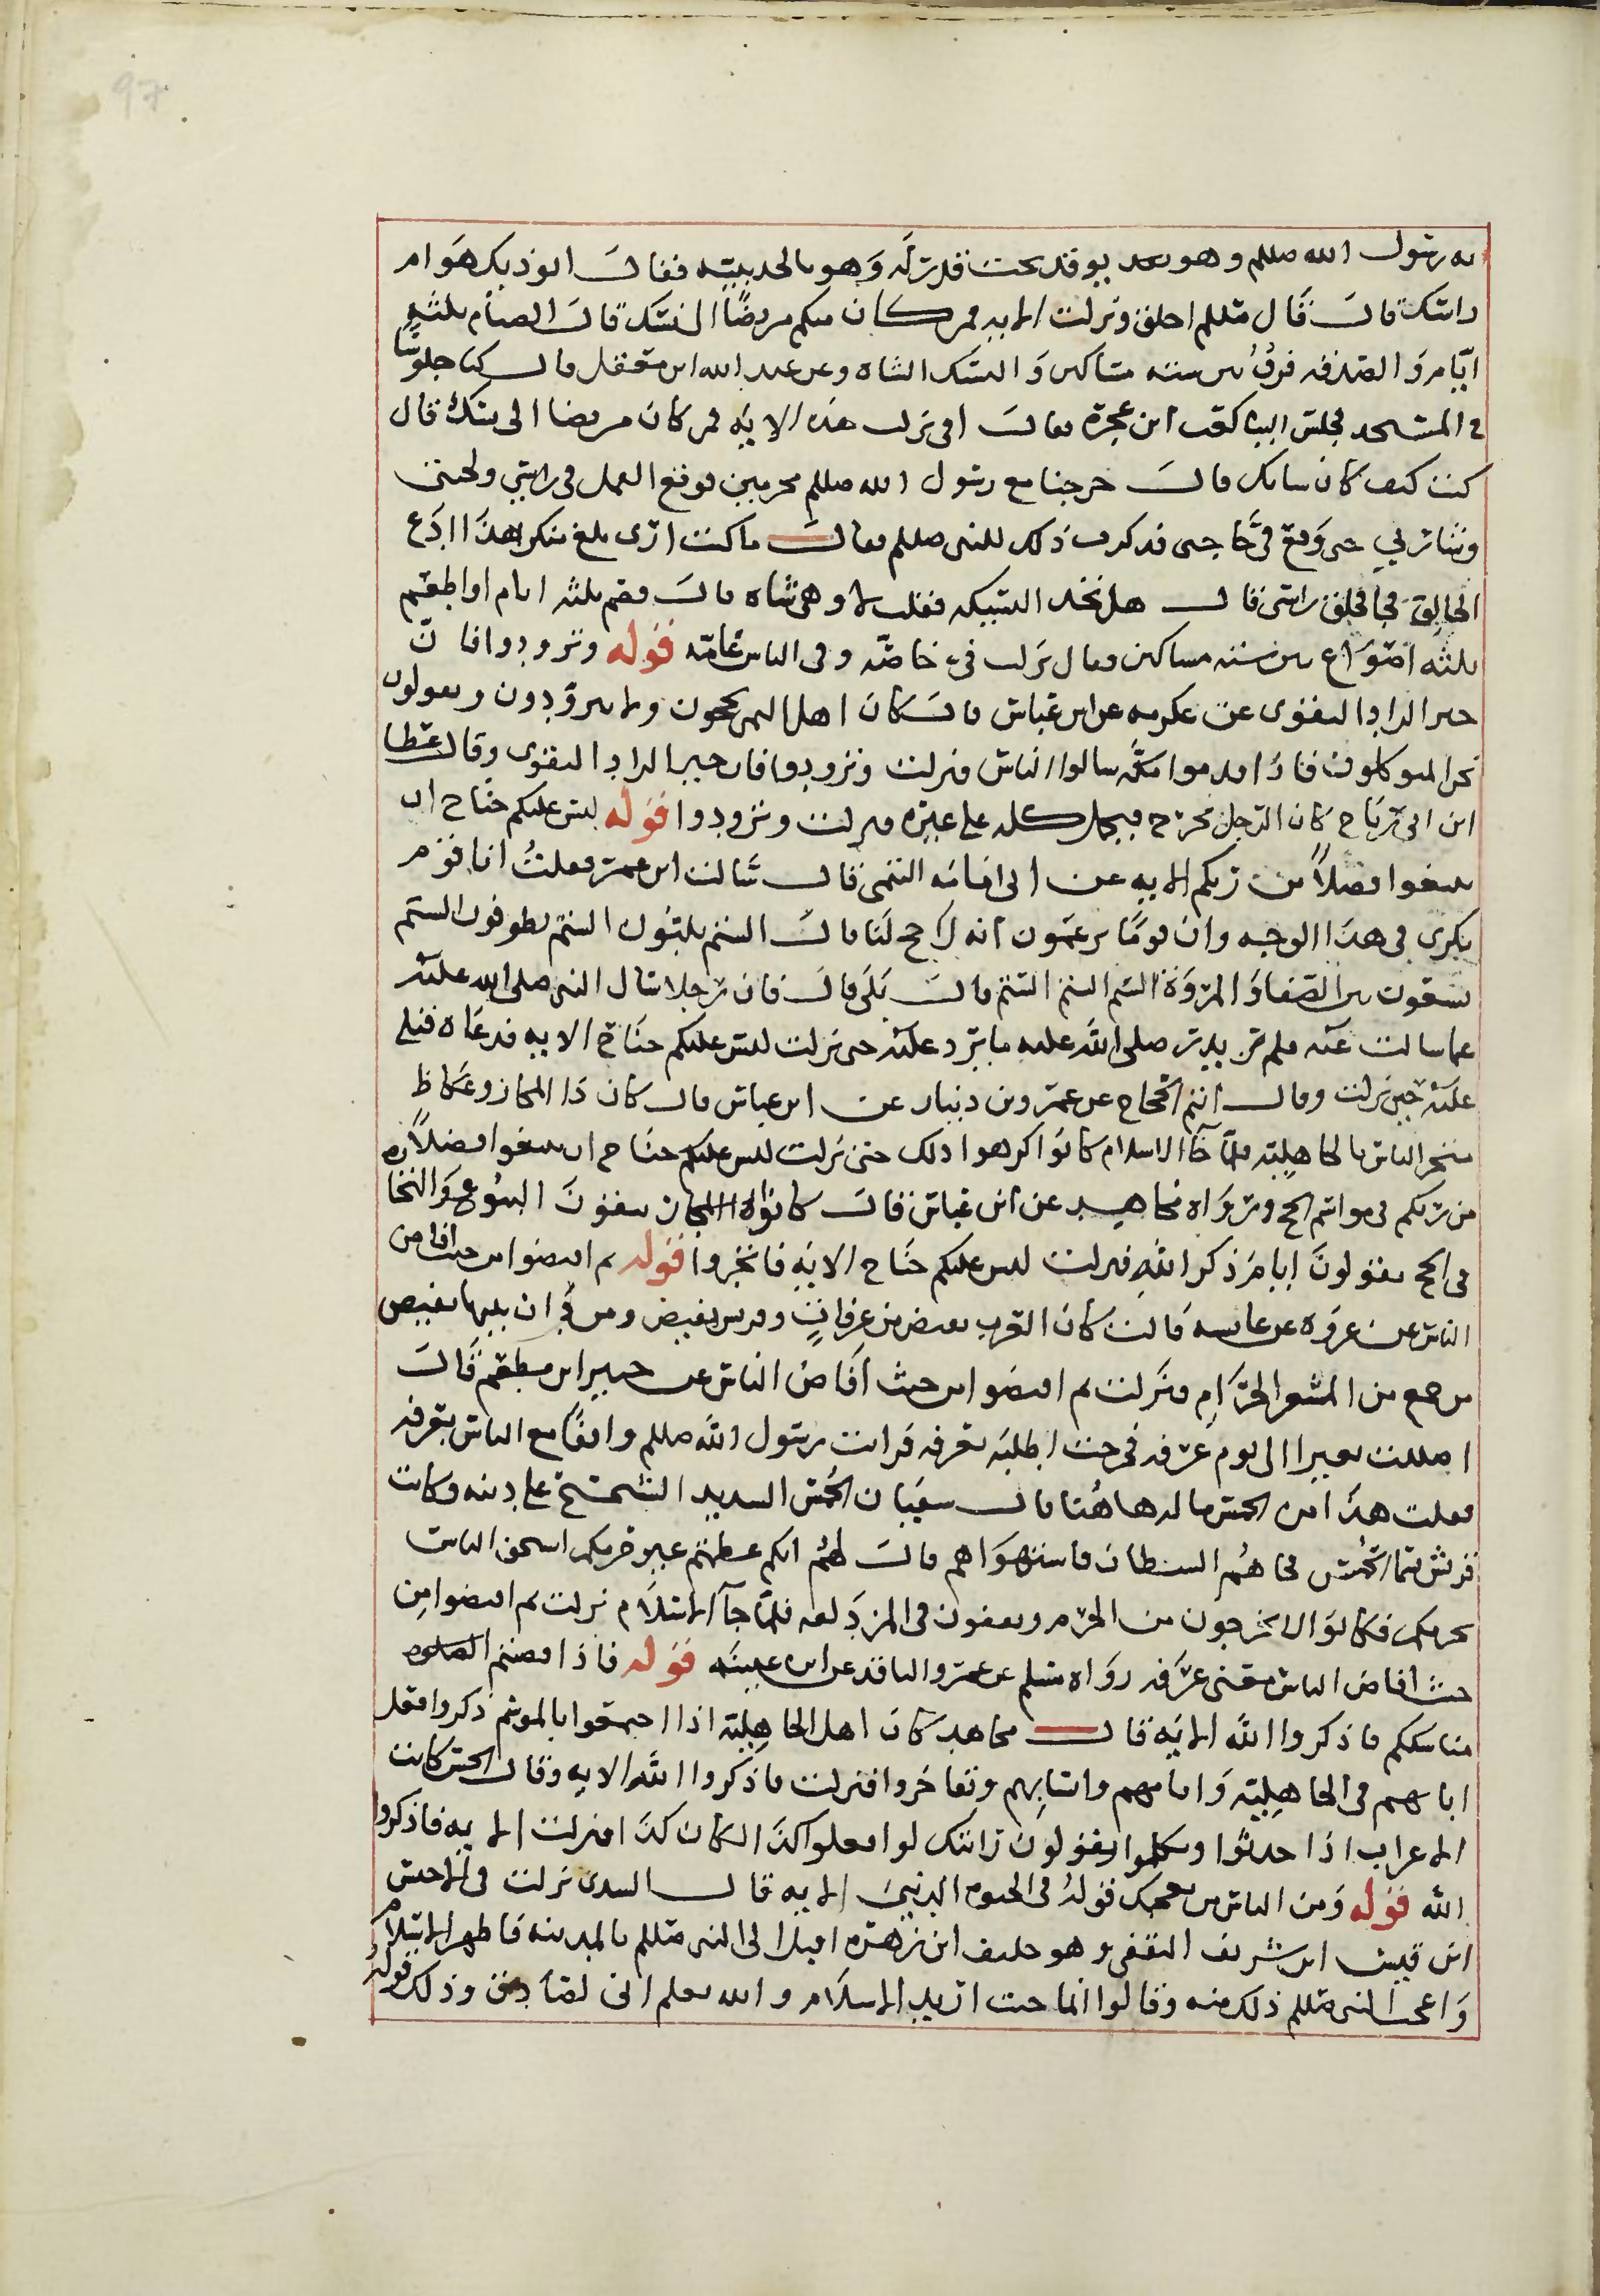 97
به رسول الله صللم وهو يوقد تحت قدر له وهو بالحديبيه فقال ايوذيك هوام
راسك قال قال صللم احلق ونزلت الايه فمن كان منكم مريضًا النسك قال الصيام ثلثه
ايّام والصدقه فرق بين سته مساكين والنسك الشاه وعن عبد الله ابن معقل قال كنا جلوسًا
في المسجد فجلس الينا كعب ابن عجرة فقال افي نزلت هذه الايه فمن كان مريضا الى نسك قال
كنت كيف كان شانك قال خرجنا مع رسول الله صللم محرمين فوقع القمل في راسي ولحيتي
وشاربي حتى وقع في حاجبي فذكرت ذلك للنبي صللم فقال ما كنت ارى بلغ منك هذا ادع
الحالق فجا فحلق راسي فقال هل تجد النسيكه فقلت لا وهي شاه قال فصم ثلثه ايام او اطعم
ثلثه اصواع بين سته مساكين فقال نزلت فيّ خاصّه وفي الناس عامّه قوله وتزودوا فان
خير الزاد التقوى عن عكرمه عن ابن عباس قال كان اهل اليمن يحجون ولا يتزودون ويقولون
نحن المتوكلون فاذا قدموا مكّه سالوا الناس فنزلت وتزودوا فان خير الزاد التقوى وقال عطا
ابن ابي رباح كان الرجل يخرج فيجعل كله على غيره فنزلت وتزودوا قوله ليس عليكم جناح ان
تبتغوا فضلاً من ربكم الايه عن ابي امامه التيمي قال سالت ابن عمر فقلتُ انا قوم
نكري في هذا الوجه وان قومًا يزعمون انه لا حج لنا قال الستم تلبّون الستم تطوفون الستم
تسعون بين الصفا والمروة الستم الستم الستم قال بلى قال فان رجلا سال النبي صلى الله عليه
عما سالت عنه فلم يدر صلى الله عليه ما يرد عليه حتى نزلت ليس عليكم جناح الايه فدعاه فتلى
عليه حين نزلت وقال عن عمرو بن دينار عن ابن عباس قال كان ذا المجاز وعكاظ
متجر الناس بالجاهليّه فلمّا جآ الاسلام كانوا كرهوا ذلك حتى نزلت ليس عليكم جناح ان تبتغوا فضلاً
من ربكم في مواسم الحج وروَاه مجاهد عن ابن عباس قال كانوا يتقون البيوع والتجا
في الحج يقولون ايام ذكر الله فنزلت ليس عليكم جناح الايه فاتجروا قوله ثم افيضوا من حيث افاض
الناس عن عروه عن عايشه قالت كان العرب تفيض من عرفات وقريش تفيض ومن دان بدينها تفيض
من جمع من المشعر الحرام فنزلت ثم افيضوا من حيث افاض الناس عن جبير ابن مطعم قال
اضللت بعيرا لي يوم عرفه فخرجت اطلبه بعرفه فرايت رسول الله صللم واقفًا مع الناس بعرفه
فقلت هذا من الحمس ما له هاهُنا قال سفيان الحُمس الشديد الشحيح على دينه وكانت
قريش تسما الحُمس فجاهُم الشيطان فاستهواهم قال لهُم انكم ان عظمتم غير حرمكم استخف الناس
بحرمكم فكانوا لا يخرجون من الحرم ويقفون في المزدلفه فلمّا جآ الاسلام نزلت ثم افيضوا مِن
حيث افاض الناس يعني عرفه روَاه مسلم عن عمرو الناقد عن ابن عيينه قوله فاذا قضيتم
مناسككم فاذكروا الله الايه قال مجاهد كان اهل الجاهليّه اذا اجتمعوا بالموسم ذكروا فعل
ابايهم في الجاهليّه وايامهم وانسابهم وتفاخروا فنزلت فاذكروا الله الايه وقال الحسن كانت
الاعراب اذا حدثوا وتكلموا يقولون وابيك لو افعلوا كذا لكان كذا فنزلت الايه فاذكروا
الله قوله ومن الناس من يعجبك قولهُ في الحيوه الدنيا الايه قال السدي نزلت في الاخنس
ابن قيس ابن شريف الثقفي وهو حليف ابن زهره اقبل الى النبي صللم بالمدينه فاظهر الاسلام
وَاعجب النبي صللم ذلك منه وقالوا انما جيت اريد الاسلام والله يعلم انى لصادق وذلك قوله